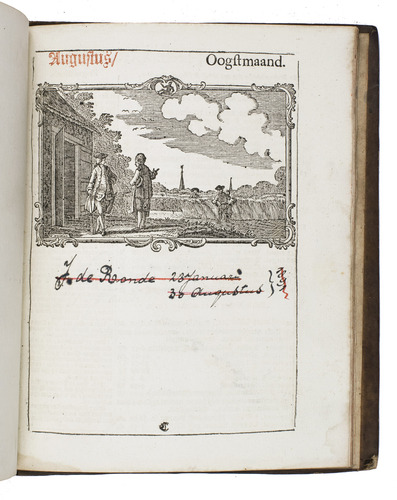 Augustus/ Oogstmaand.
J de Ronde 23 Januari
30 Augustus
C